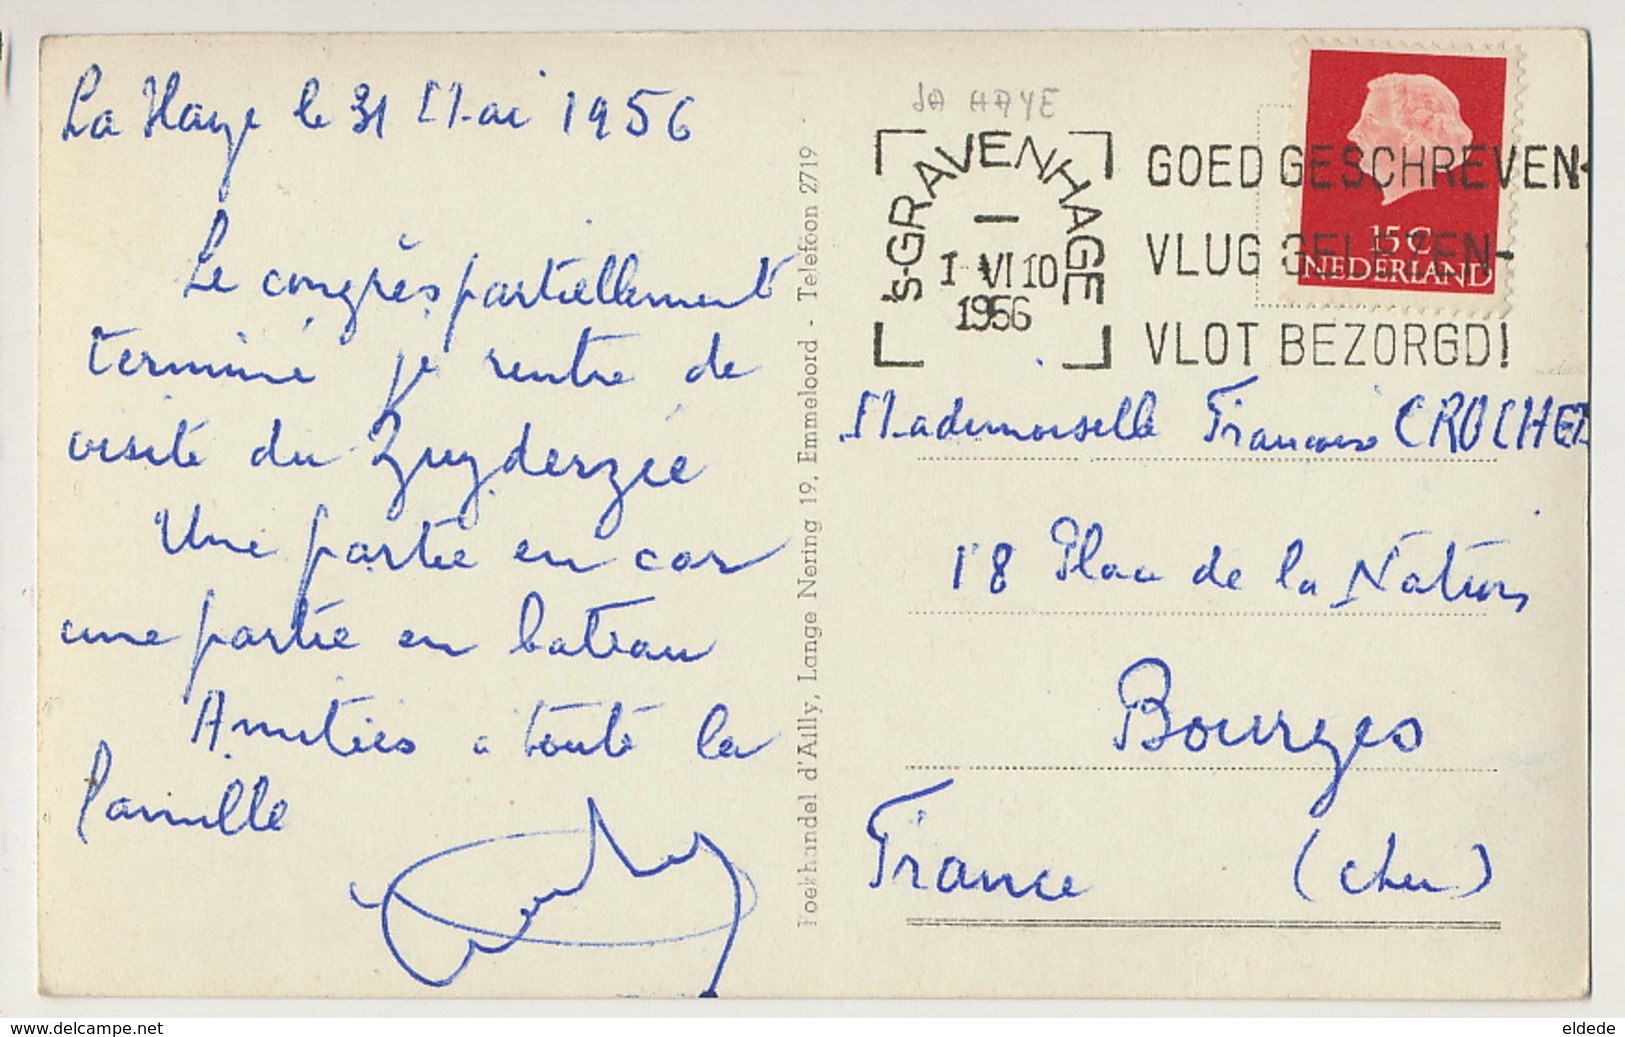 La Haye le 31 Mai 1956
Le congrès partiellement
terminé je rentre de
visite du Zuyderzée
Une partie en car
une partie en bateau
Amitiés à toute la
famille
Boekhandel d'Ailly, Lange Nering 19, Emmeloord - Telefoon 2719
LA HAYE
's-GRAVENHAGE
1 VI 10
1956
GOED GESCHREVEN-
VLUG GELEZEN-
VLOT BEZORGD!
15 C
NEDERLAND
Mademoiselle Françoise CROCHET
18 Place de la Nation
Bourges
France (Cher)
www.delcampe.net
eldede